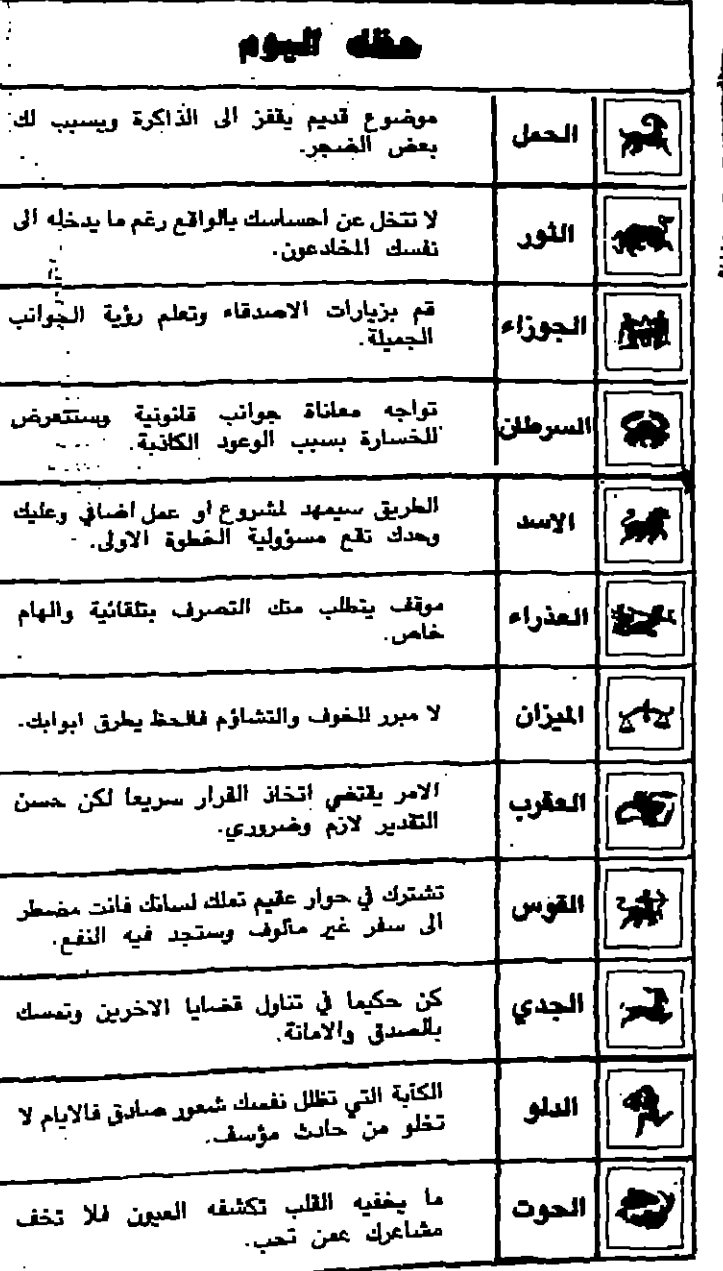 حظك اليوم
الحمل
موضوع قديم يقفز الى الذاكرة ويسبب لك
بعض الضجر.
الثور
لا تتخل عن احساسك بالواقع رغم ما يدخله الى
نفسك المخادعون.
الجوزاء
قم بزيارات الاصدقاء وتعلم رؤية الجوانب
الجميلة.
السرطان
تواجه معاناة جوانب قانونية وستتعرض
للخسارة بسبب الوعود الكاذبة.
الاسد
الطريق سيمهد لمشروع او عمل اضافي وعليك
وحدك تقع مسؤولية الخطوة الاولى.
العذراء
موقف يتطلب منك التصرف بتلقائية والهام
خاص.
الميزان
لا مبرر للخوف والتشاؤم فالحظ يطرق ابوابك.
العقرب
الامر يقتضي اتخاذ القرار سريعا لكن حسن
التقدير لازم وضروري.
القوس
تشترك في حوار عقيم تملك لسانك فانت مضطر
الى سفر غير مألوف وستجد فيه النفع.
الجدي
كن حكيما في تناول قضايا الاخرين وتمسك
بالصدق والامانة.
الدلو
الكآبة التي تظلل نفسك شعور صادق فالايام لا
تخلو من حادث مؤسف.
الحوت
ما يخفيه القلب تكشفه العيون فلا تخف
مشاعرك عمن تحب.